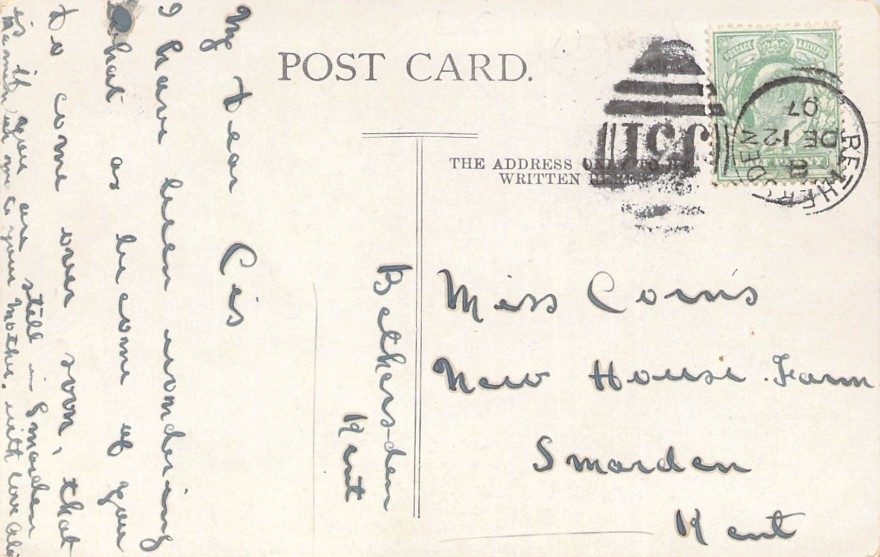 POST CARD.
THE ADDRESS ONLY TO BE
WRITTEN HERE
POSTAGE & REVENUE
BETHERSDEN
DE 12
07
Miss Corns
New House Farm
Smarden
Kent
Bethersden
Kent
My dear Cis
I have been wondering
what as become of you
to come over soon, that
is if you are still in Smarden
to your Mother. with love